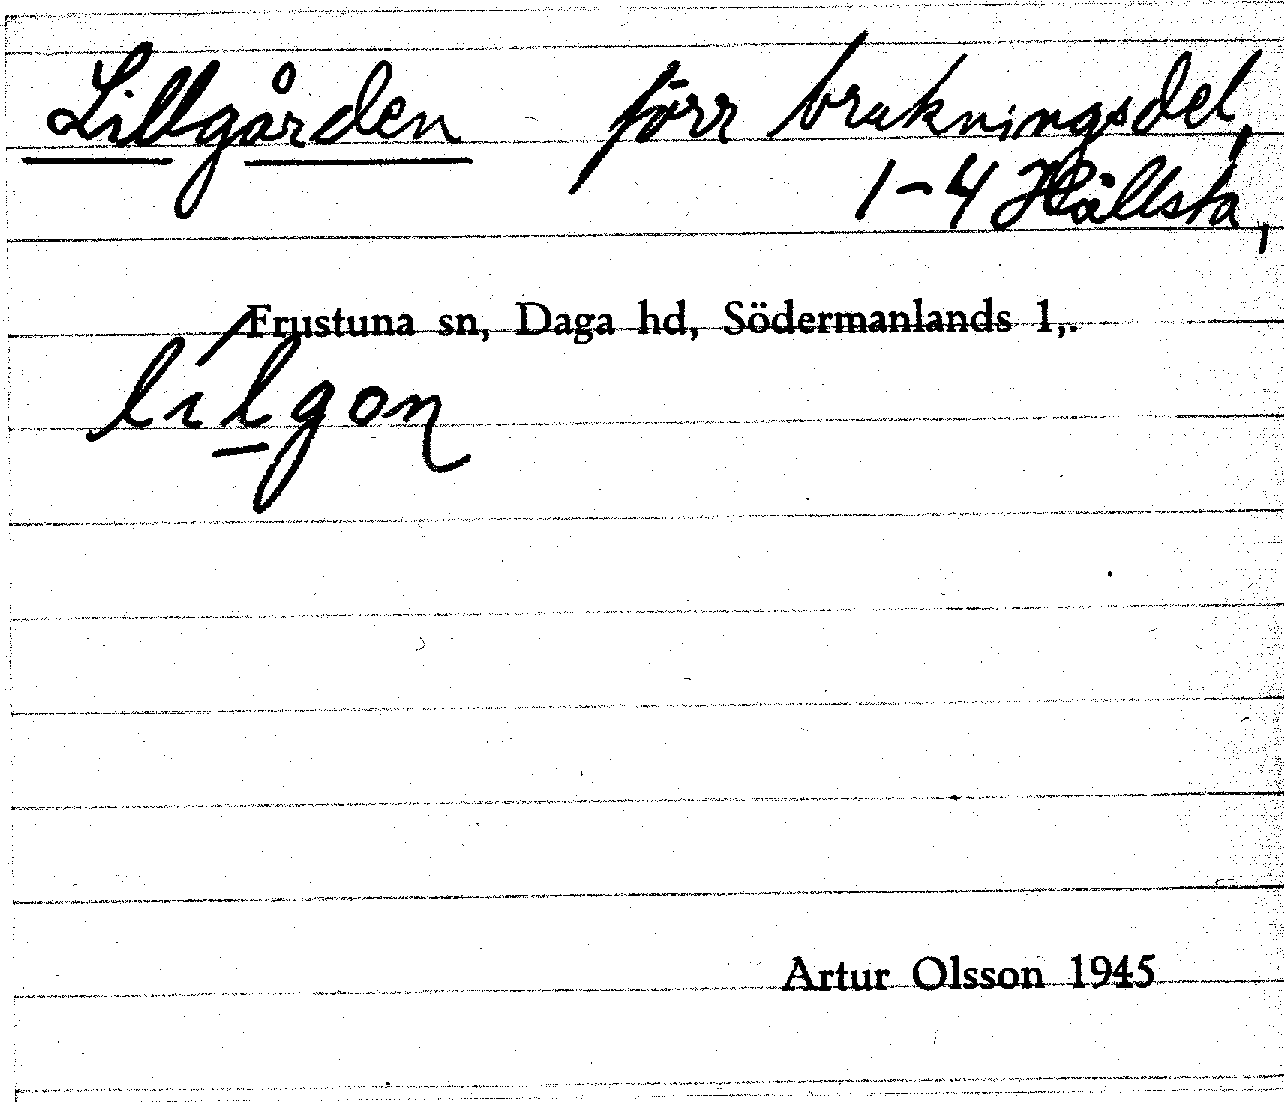 Lillgården förr brukningsdel,
1-4 Hällsta,
Frustuna sn, Daga hd, Södermanlands l,.
lílgon
Artur Olsson 1945